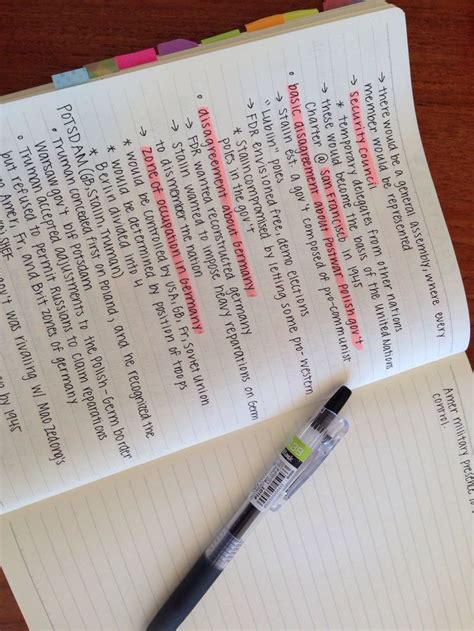 → there would be a general assembly, where every
member would be represented
Security Council
* temporary delegates from other nations
* these would become the basis of the United Nations
Charter @ San Francisco in 1945
• basic disagreement about Postwar Polish gov't
→ Stalin est. a gov't composed of pro-communist
"Lublin" poles
→ FDR envisioned free, demo elections
* Stalin compromised by letting some pro-western
poles in the gov't
• disagreement about Germany
→ FDR wanted reconstructed germany
→ Stalin wanted to impose heavy reparations on Germ
to dismember the nation
→ Zone of occupation in Germany
* would be controlled by USA, GB, Fr, Soviet union
* would be determined by position of troops
Berlin divided into 4
POTSDAM (GB, Stalin, Truman)
• Truman conceded first on Poland, and he recognized the
Warsaw gov't b4 Potsdam
• Truman accepted adjustments to the Polish-Germ border
but refused to permit Russians to claim reparations
Amer, Fr, and Brit zones of germany
gov't was rivaling w/ Mao Zedong's
by 1945
Amer military presence
control.
PILOT